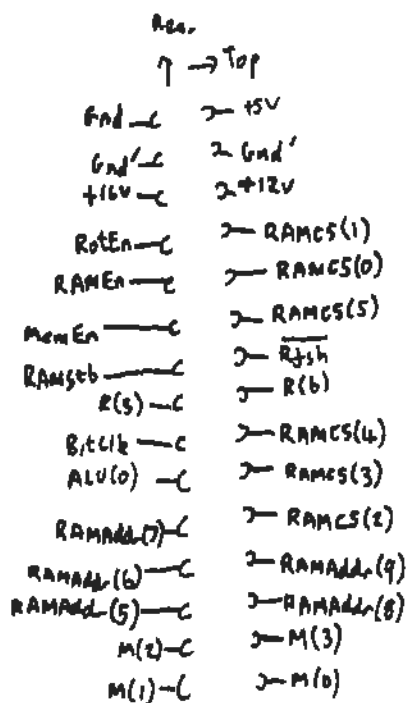 Rear
→ Top
Gnd +5V
Gnd' Gnd'
+16V +12V
RotEn RAMCS(1)
RAMEn RAMCS(0)
MemEn RAMCS(5)
RAMStb Rfsh
R(5) R(6)
BitClk RAMCS(4)
ALU(0) RAMCS(3)
RAMAddr(7) RAMCS(2)
RAMAddr(6) RAMAddr(9)
RAMAddr(5) RAMAddr(8)
M(2) M(3)
M(1) M(0)